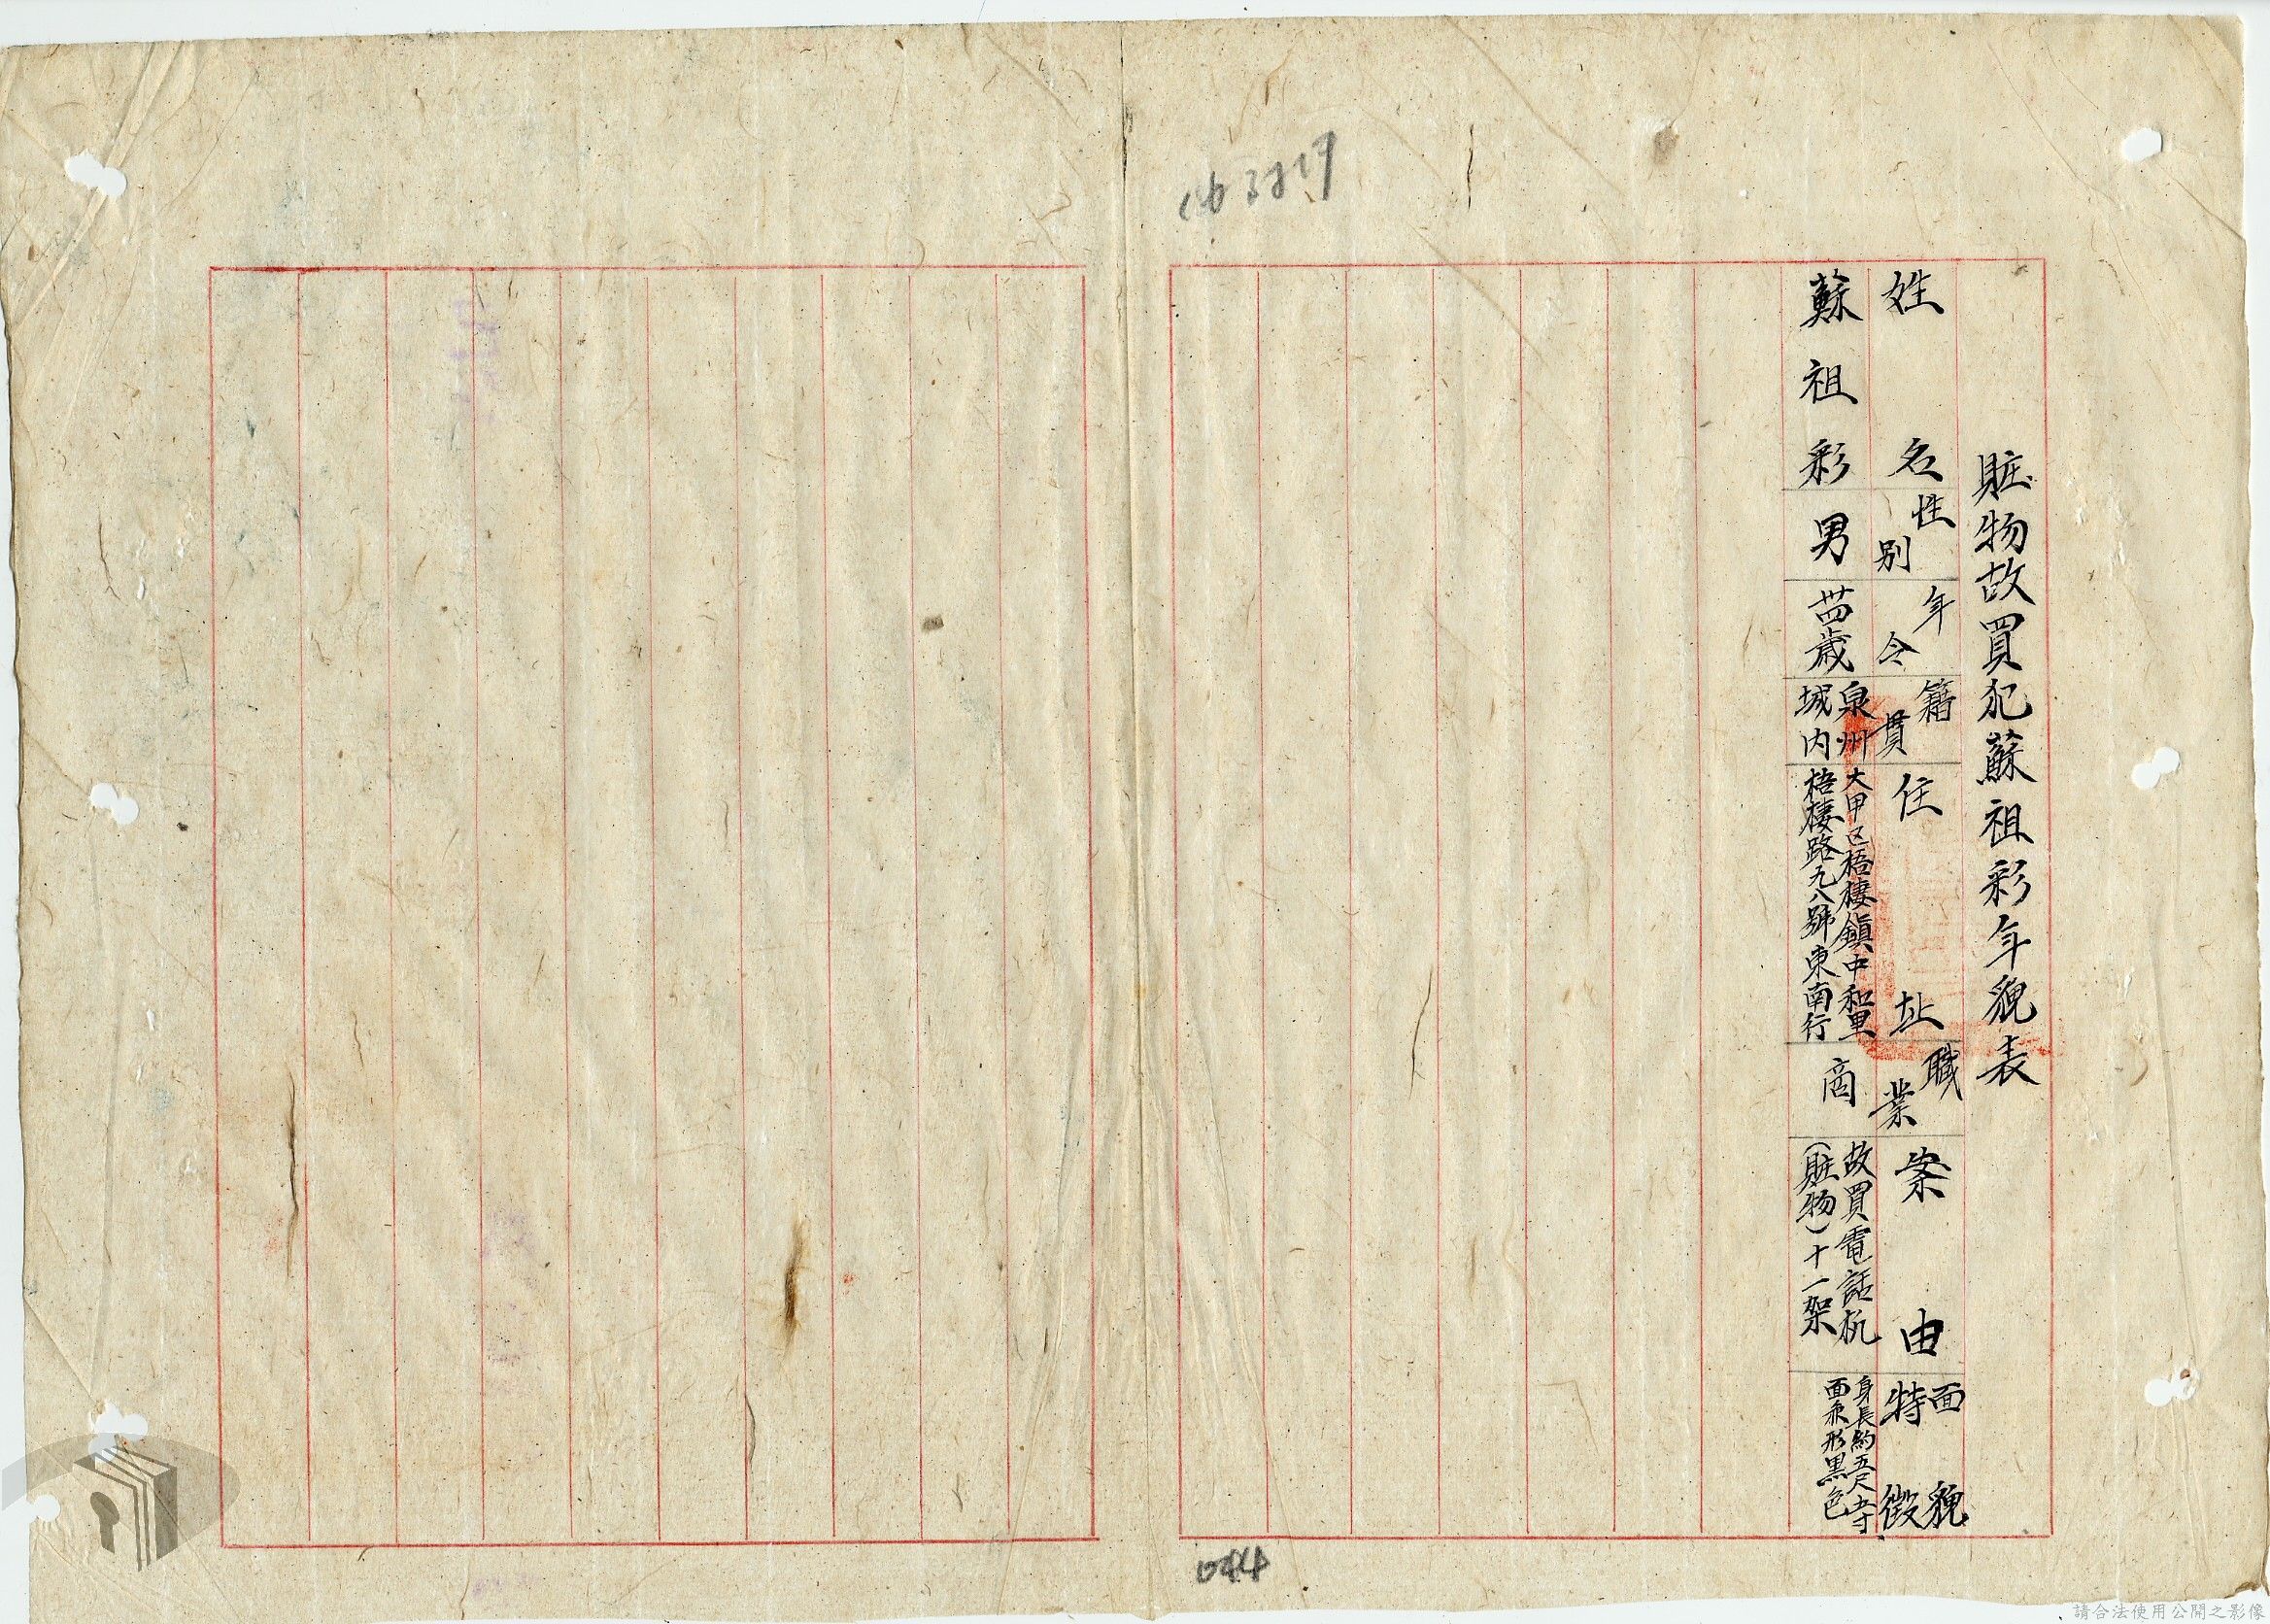 賍物故買犯蘇祖彩年貌表
姓名
性別
年令
籍貫
住址
職業
案由
面貌
特徵
蘇祖彩
男
卅四歲
泉州
城内
大甲区梧棲鎮中和里
梧棲路九八號東南行
商
故買電話机
(賍物)十一架
身長約五尺五寸
面形黑色
044
請合法使用公開之影像